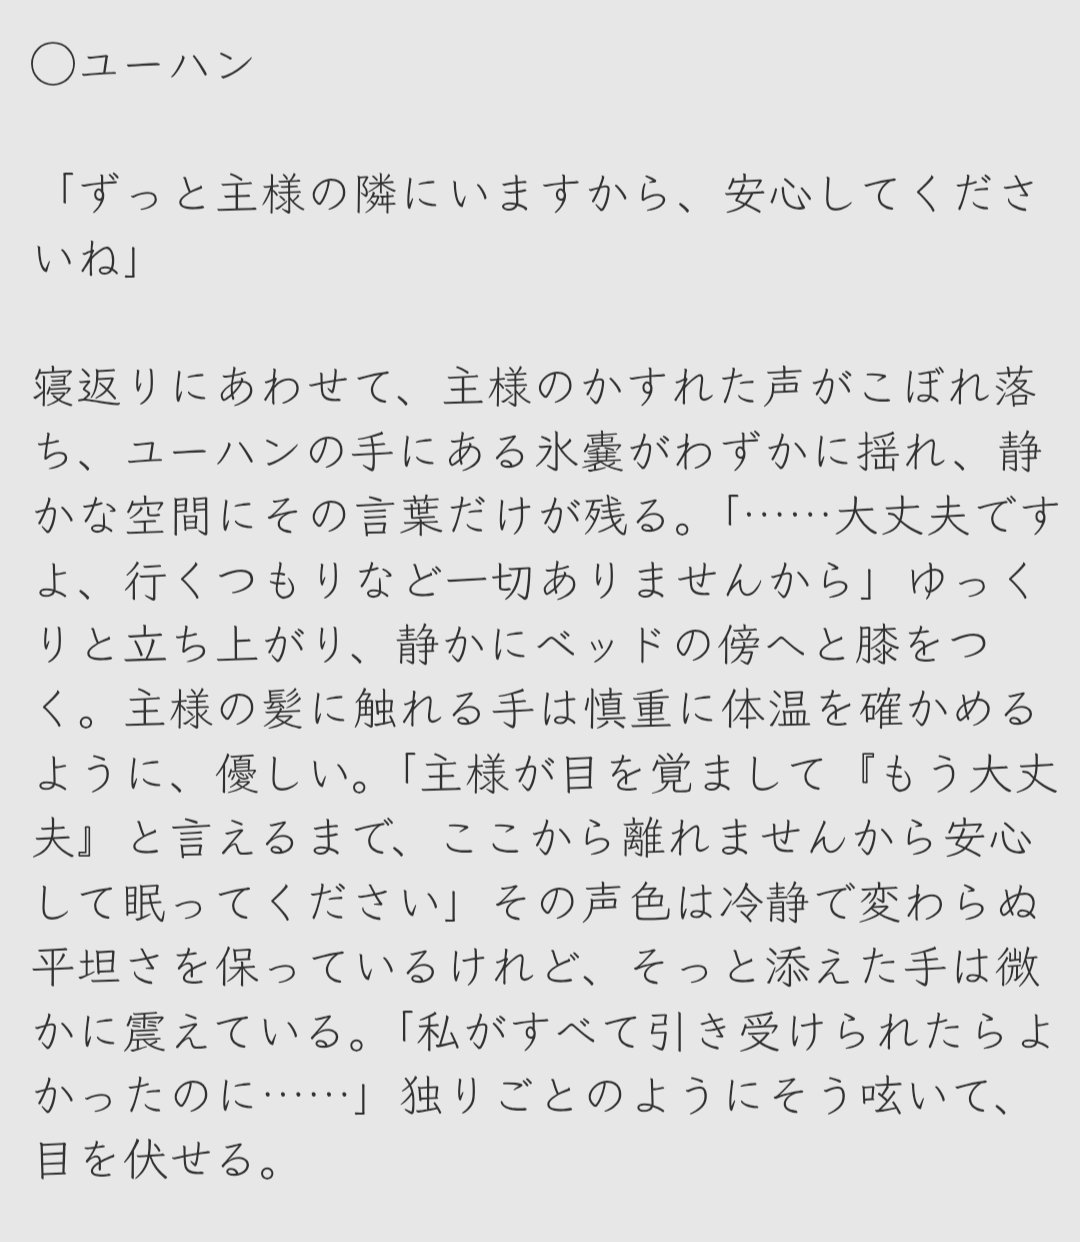 ◯ユーハン
「ずっと主様の隣にいますから、安心してくださ
いね」
寝返りにあわせて、主様のかすれた声がこぼれ落
ち、ユーハンの手にある氷嚢がわずかに揺れ、静
かな空間にその言葉だけが残る。「……大丈夫です
よ、行くつもりなど一切ありませんから」ゆっく
りと立ち上がり、静かにベッドの傍へと膝をつ
く。主様の髪に触れる手は慎重に体温を確かめる
ように、優しい。「主様が目を覚まして『もう大丈
夫』と言えるまで、ここから離れませんから安心
して眠ってください」その声色は冷静で変わらぬ
平坦さを保っているけれど、そっと添えた手は微
かに震えている。「私がすべて引き受けられたらよ
かったのに……」独りごとのようにそう呟いて、
目を伏せる。